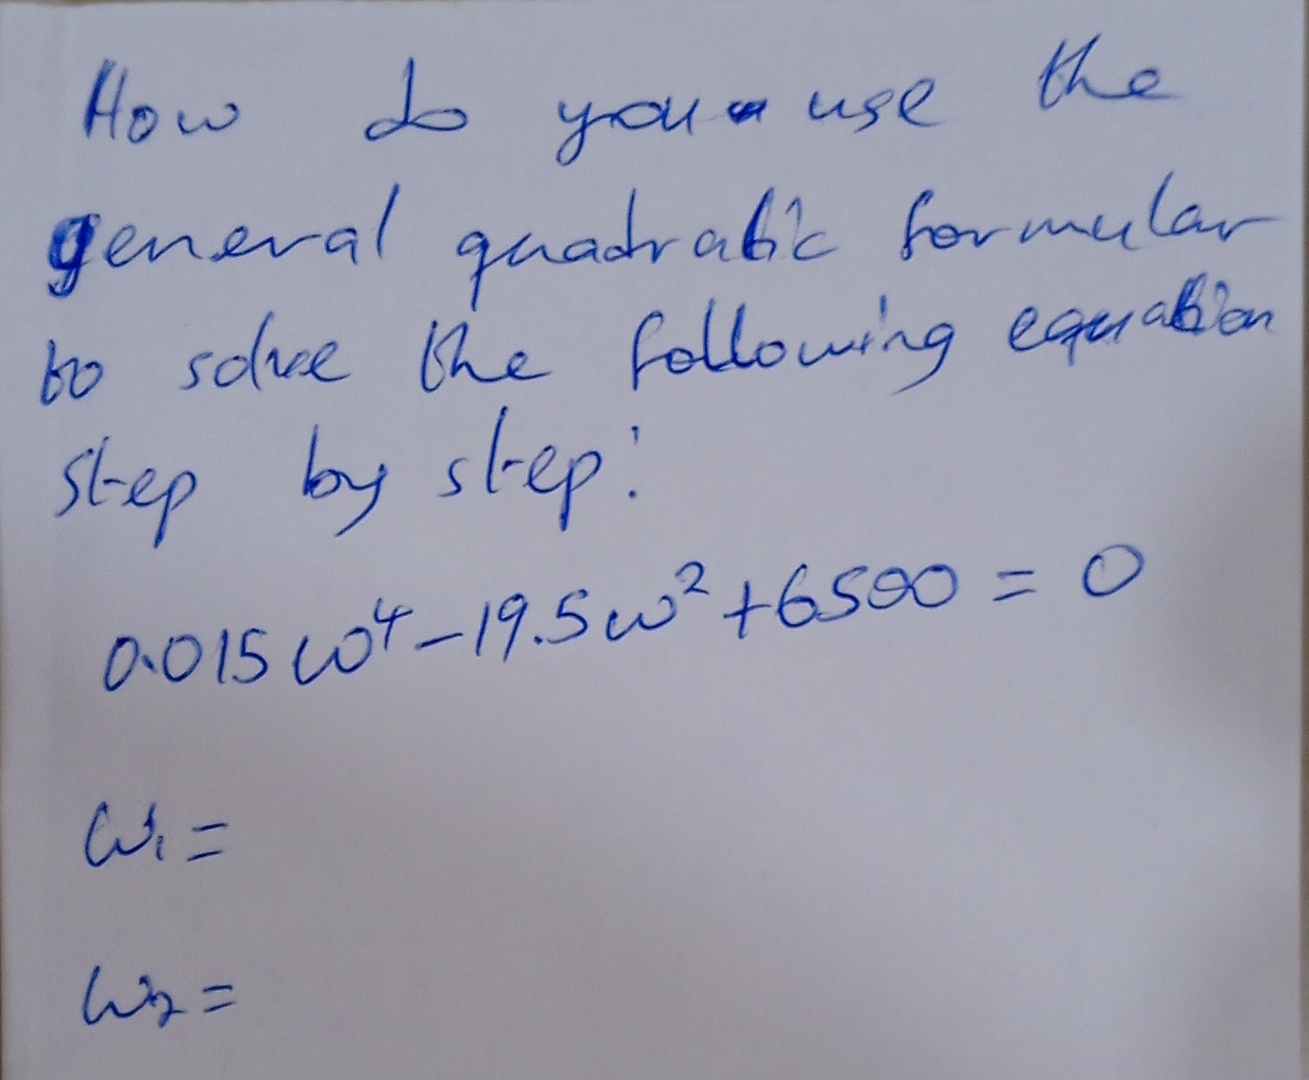 How do you use the
general quadratic formular
to solve the following equation
step by step:
0.015ω⁴-19.5ω²+6500=0
ω₁=
ω₂=